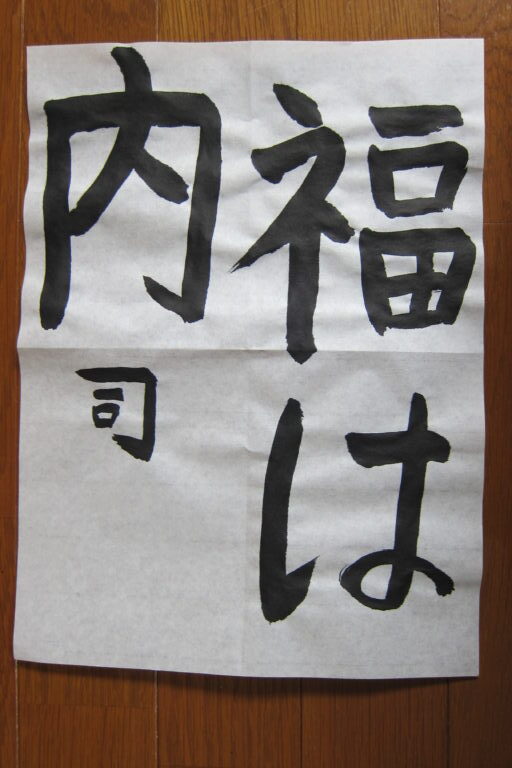 福は
内
司